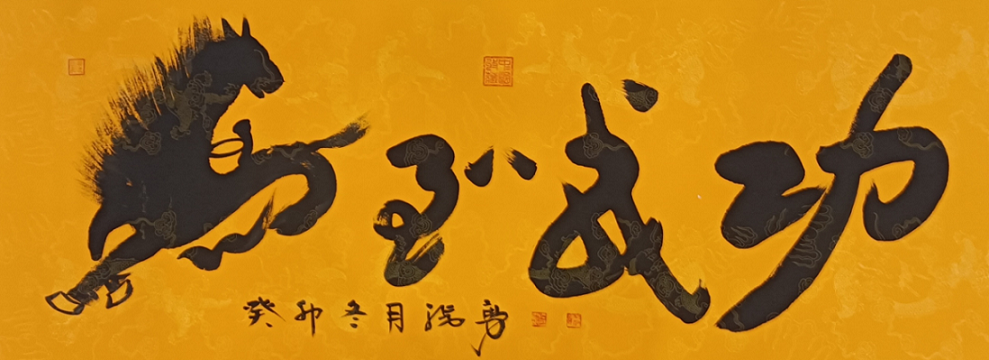 馬到成功
癸卯冬月